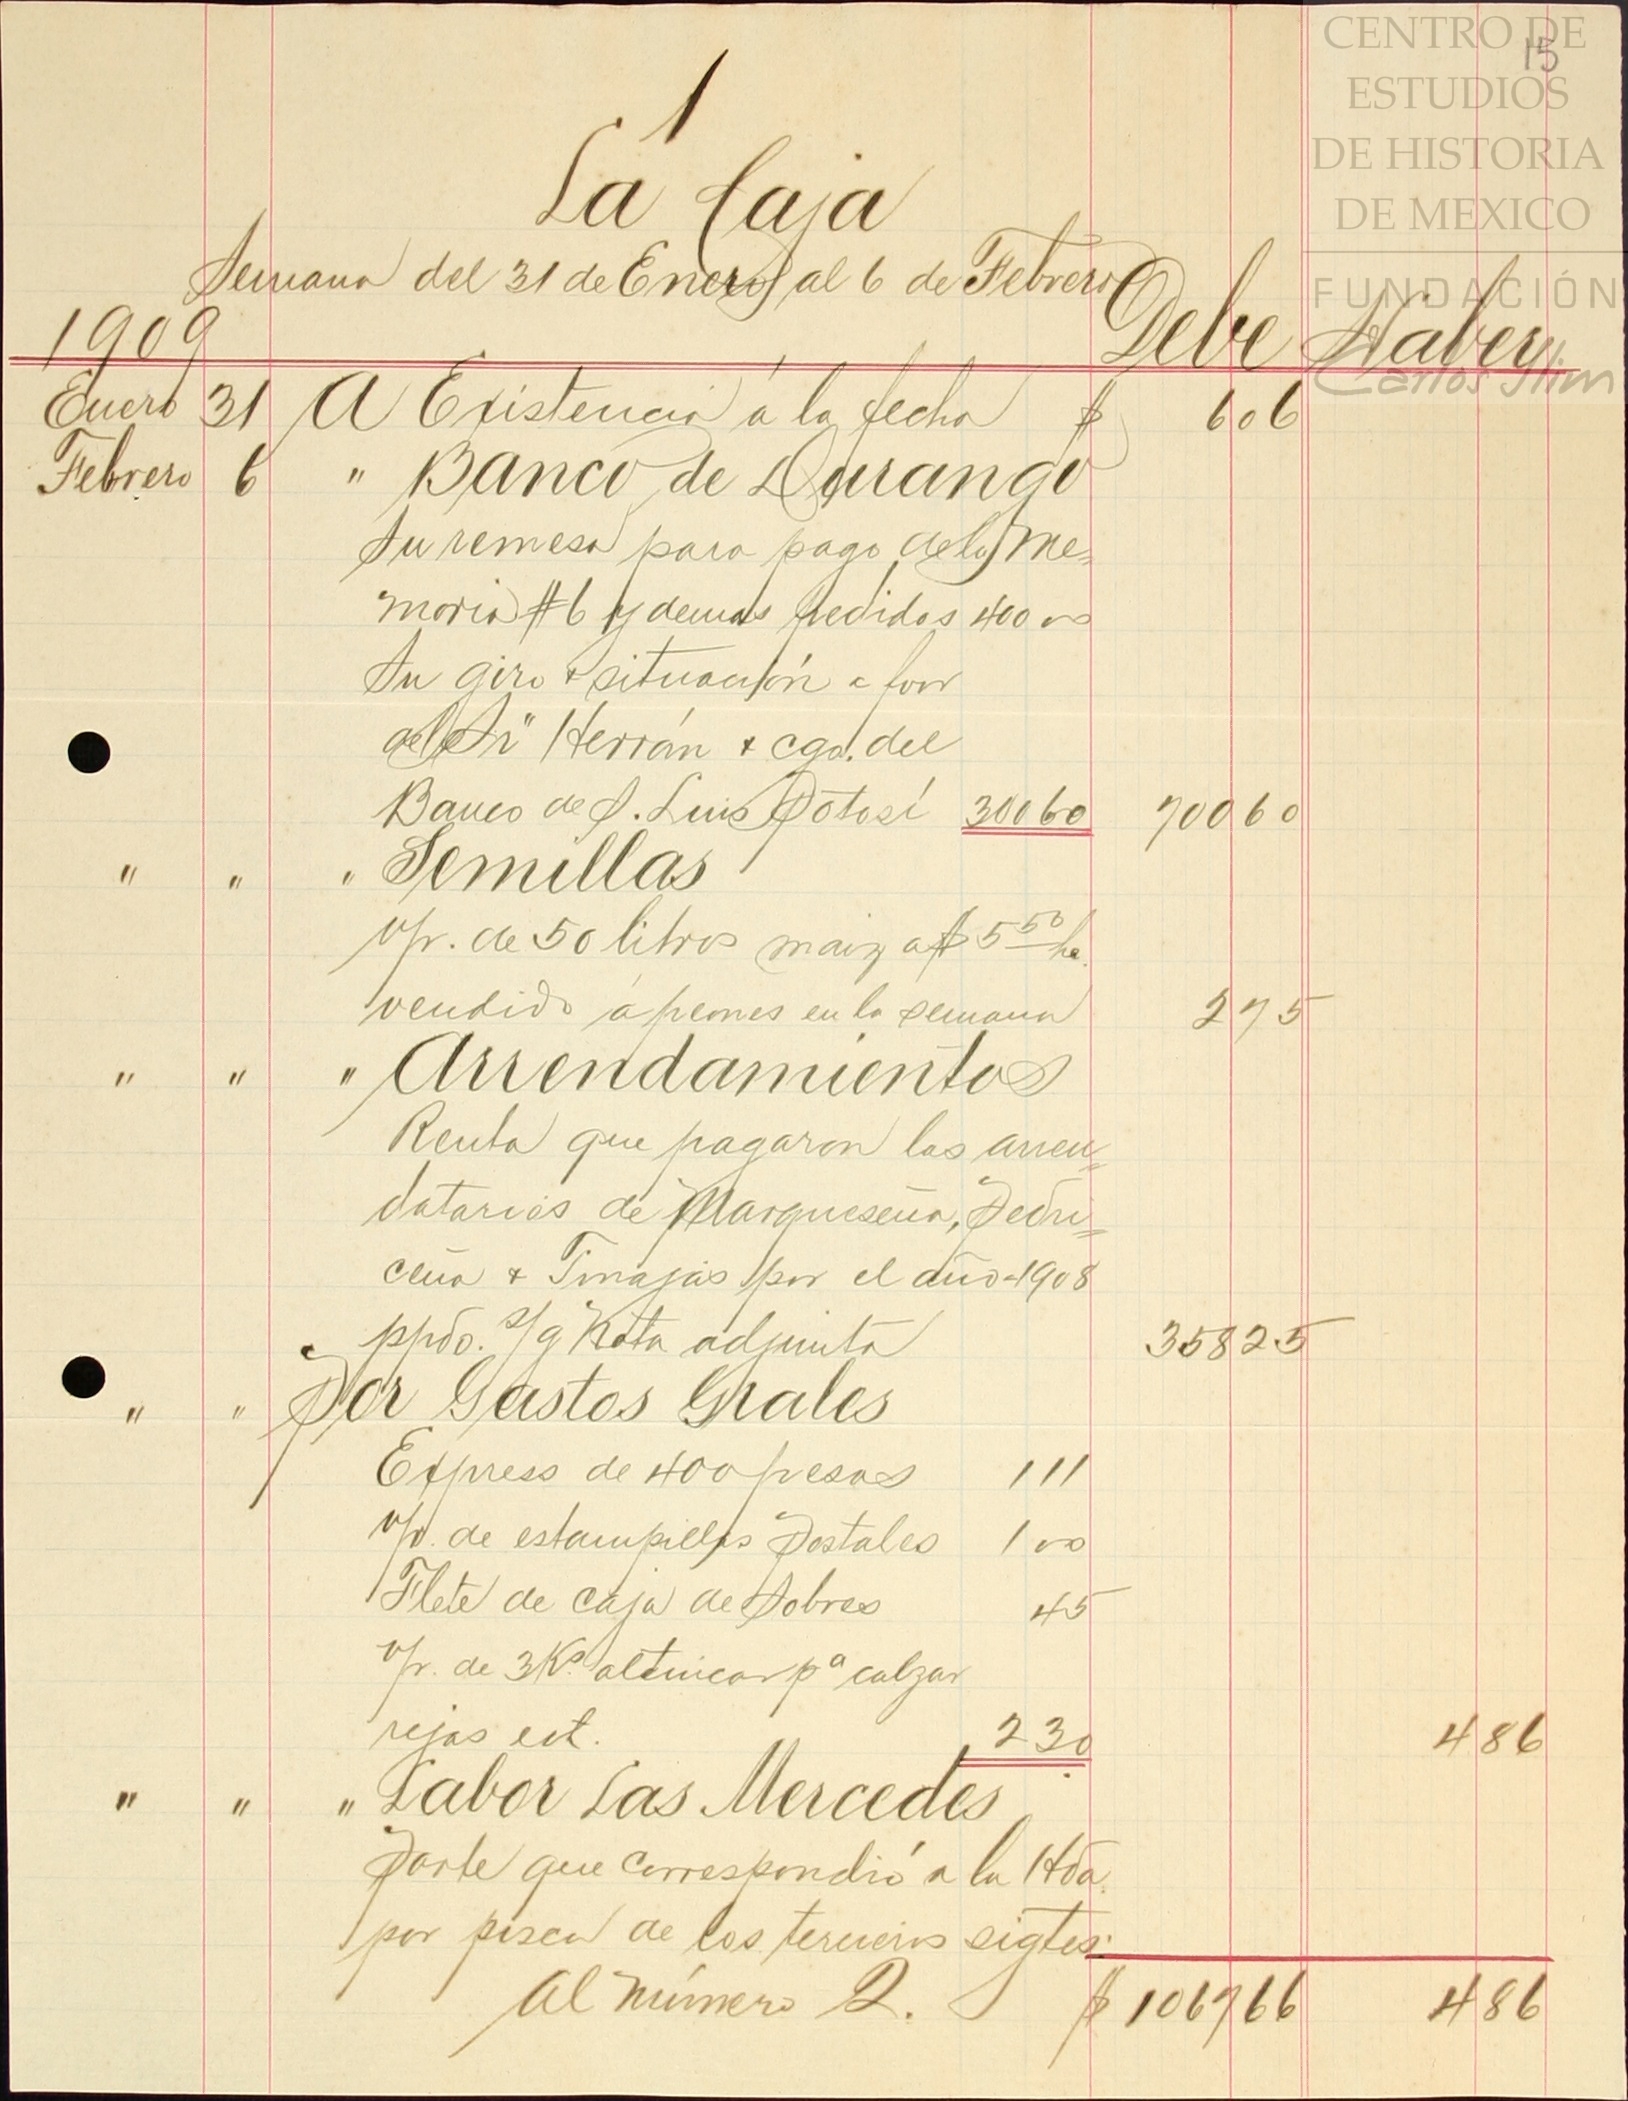 CENTRO DE
ESTUDIOS
DE HISTORIA
DE MEXICO
FUNDACIÓN
Carlos Slim
15
1
La Caja
Semana del 31 de Enero al 6 de Febrero
1909 Debe Haber
Enero 31 A Existencia á la fecha $ 6 06
Febrero 6 " Banco de Durango
Su remesa para pago de la Me=
moria #6 y demas pedidos 400 00
Su giro & situación a fvor
del Sr Herrán & cgo. del
Banco de S. Luis Potosí 300 60 700 60
" " " Semillas
v/r. de 50 litros maiz a $ 5 50 he.
vendido á peones en la semana 2 75
" " " Arrendamientos
Renta que pagaron los arren=
datarios de Marqueseña, Pedri=
ceña & Tinajas por el año 1908
ppdo. s/g Nota adjunta 358 25
" " Por Gastos Grales
Express de 400 pesos 1 11
v/r. de estampillas Postales 1 00
Flete de caja de Sobres 45
v/r. de 3 Ks. altincar pa calzar
rejas ext. 2 30 4 86
" " " Labor Las Mercedes
Parte que correspondió a la Hda.
por pisca de los tercieros sigtes:
Al número 2. $ 1067 66 4 86